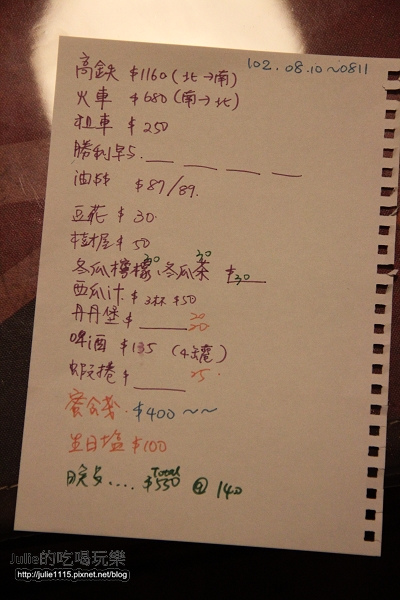 102.08.10~0811
高鉄 $1160(北→南)
火車 $680(南→北)
租車 $250
勝利早点. __ __ __ __
油錢 $87/89.
豆花 $30.
$50
冬瓜檸檬30、冬瓜茶20 $30
西瓜汁 $3杯$50
丹丹堡 $____ 20 20
啤酒 $135 (4罐)
蝦捲 $____ 25.
蜜餞. $400~~
生日塩 $100
晚点.... Total $550 @ 140
Julie的吃喝玩樂
http://julie1115.pixnet.net/blog